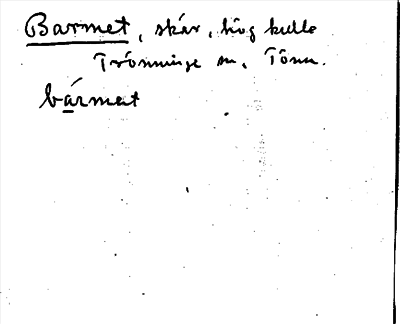 Barmet, skär, hög kulle
Trönninge sn, Tönn.
bármat